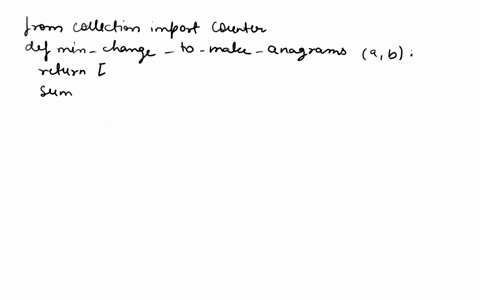 from collection import counter
def min_change_to_make_anagrams (a,b):
return [
sum